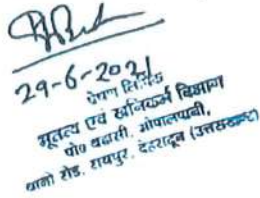 29-6-2021
भूतत्व एवं खनिकर्म विभाग
पो० बद्रासी, भोपालपानी,
थानो रोड, रायपुर, देहरादून (उत्तराखण्ड)